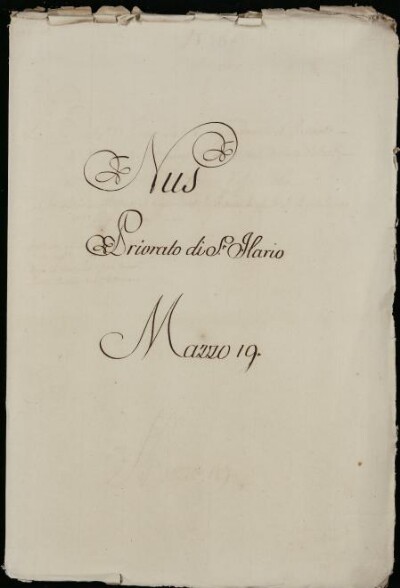 Nus
Priorato di S.t Ilario
Mazzo 19.